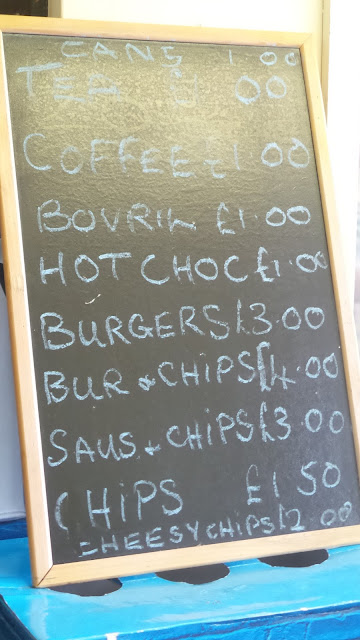 CANS 1.00
TEA £1.00
COFFEE £1.00
BOVRIL £1.00
HOT CHOC £1.00
BURGERS £3.00
BUR & CHIPS £4.00
SAUS & CHIPS £3.00
CHIPS £1.50
CHEESY CHIPS £2.00